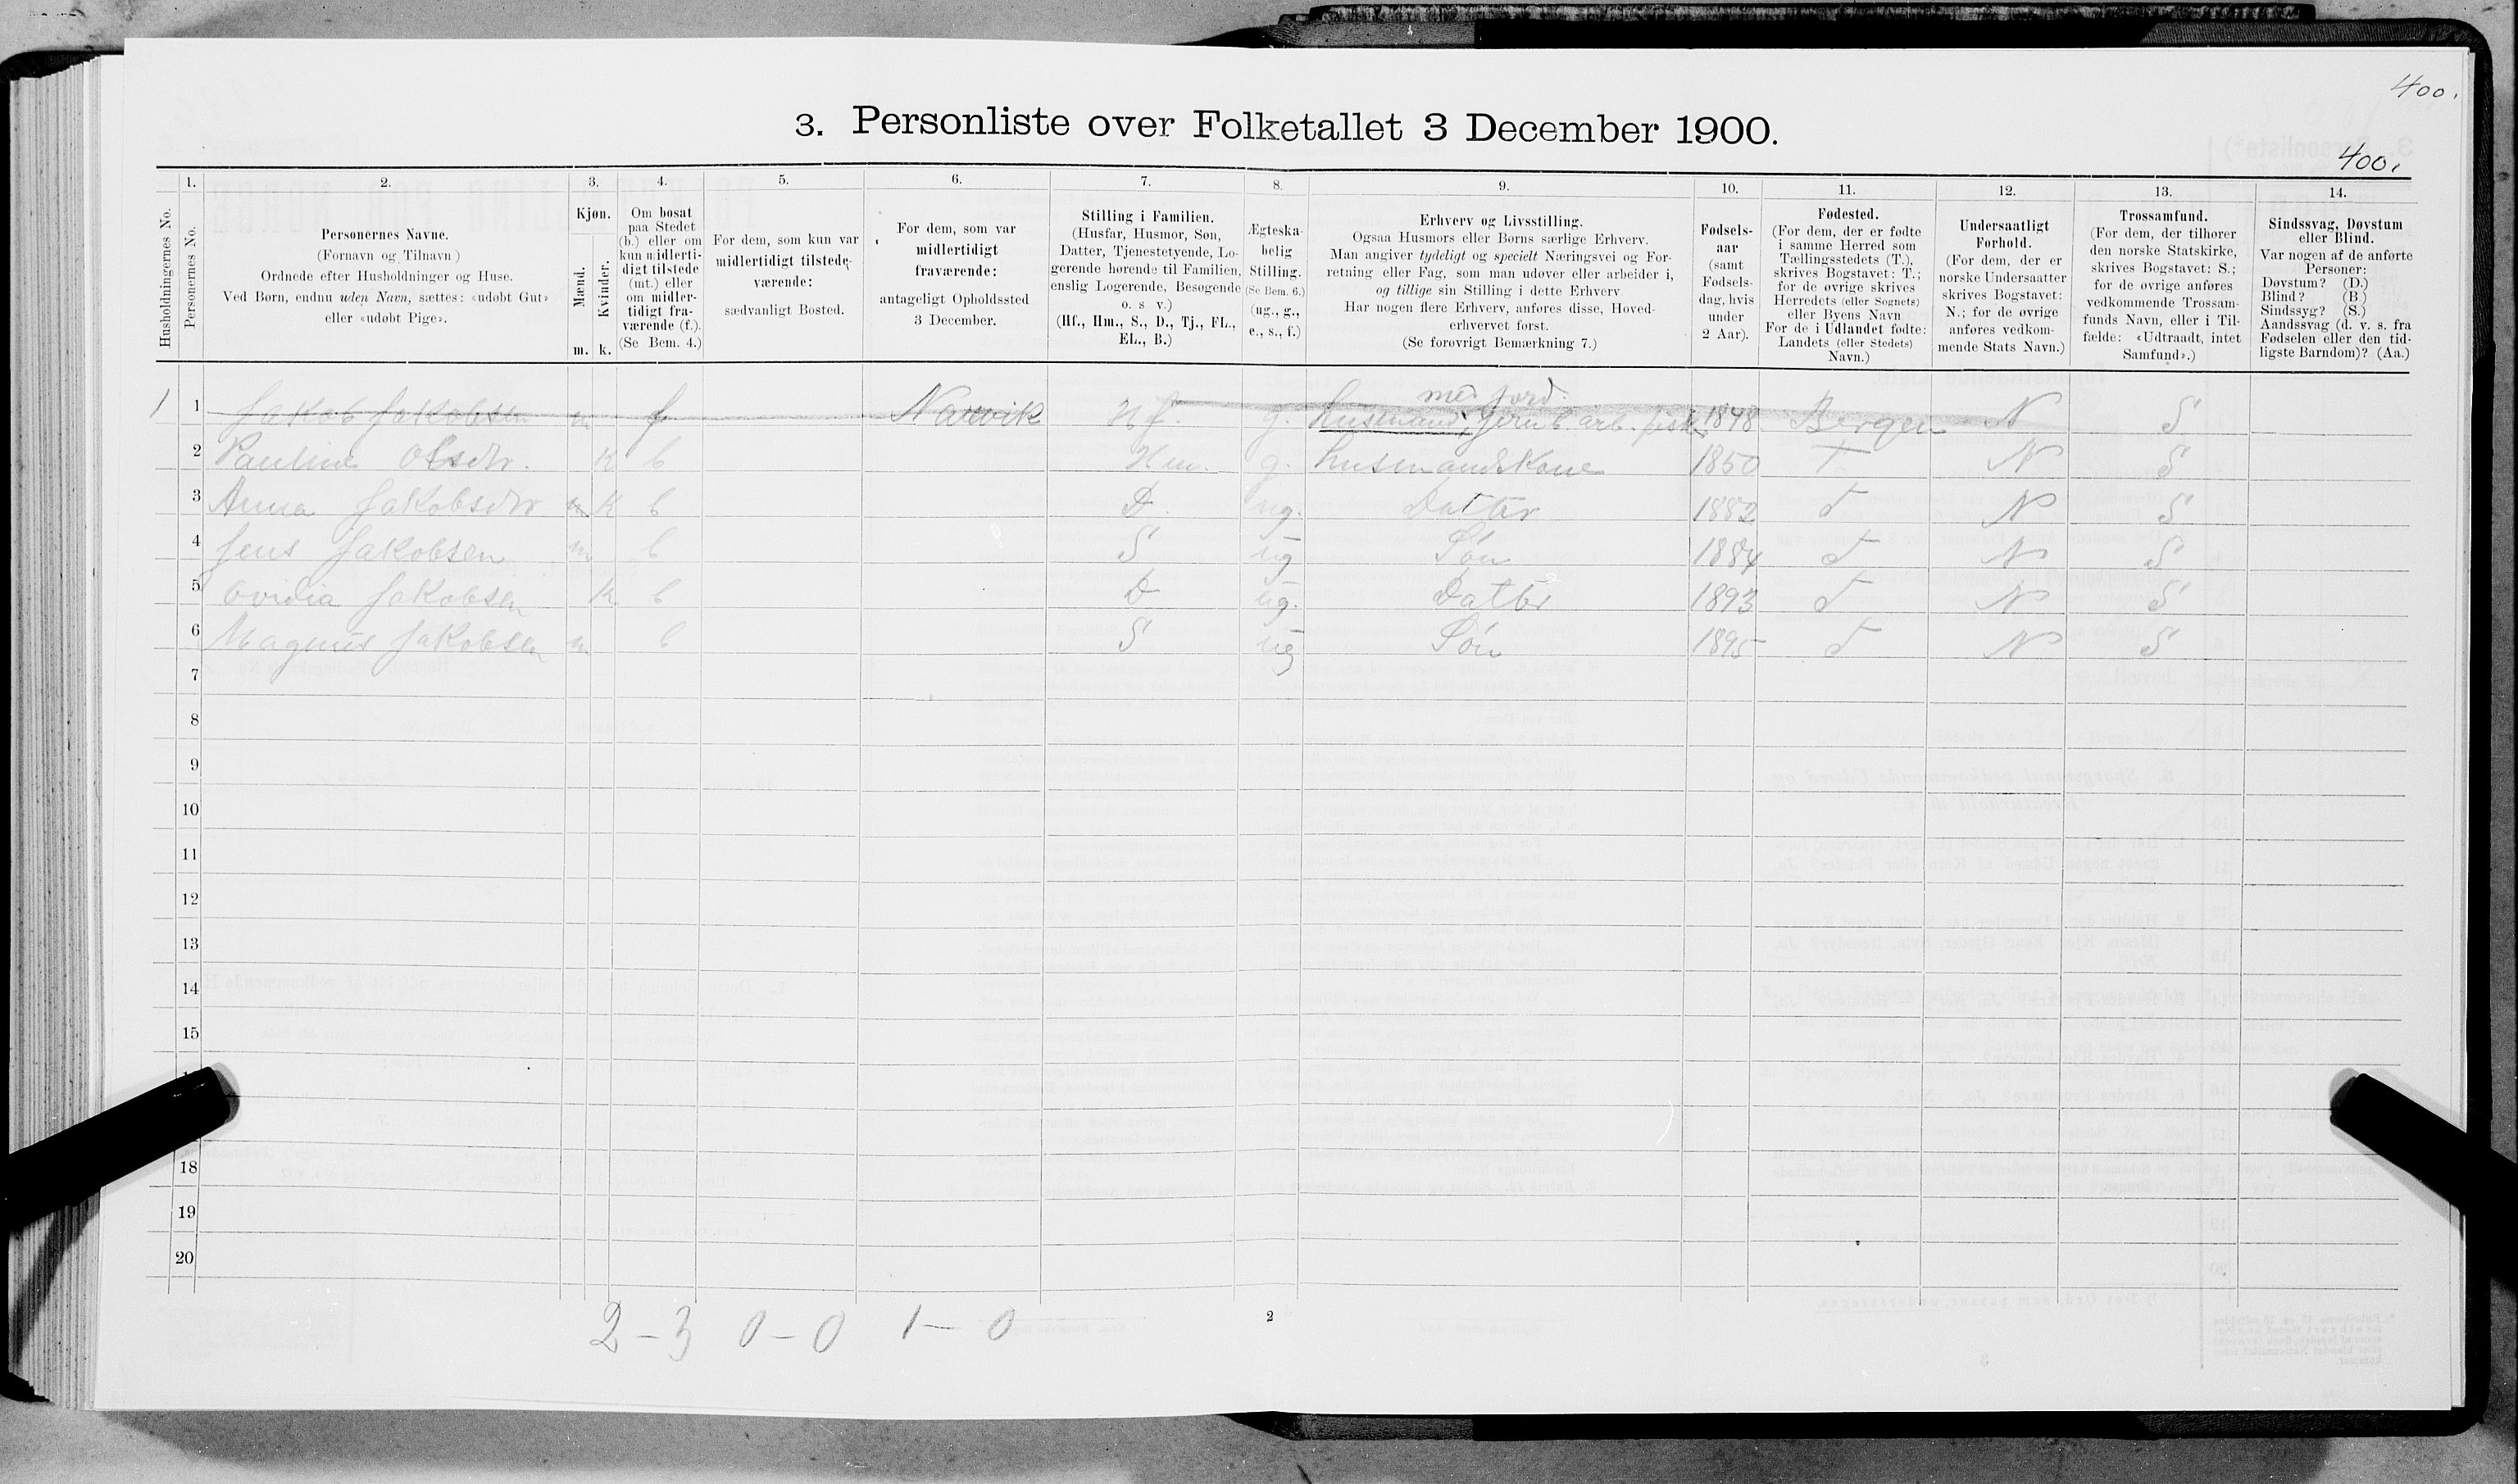 400.
3. Personliste over Folketallet 3 December 1900.
400.
1. 2. 3. 4. 5. 6. 7. 8. 9. 10. 11. 12. 13. 14.
Husholdningernes No.
Personernes No.
Personernes Navne.
(Fornavn og Tilnavn)
Ordnede efter Husholdninger og Huse.
Ved Børn, endnu uden Navn, sættes: «udøbt Gut»
eller «udøbt Pige».
Kjøn.
Mænd.
Kvinder.
m. k.
Om bosat
paa Stedet
(b.) eller om
kun midlerti-
digt tilstede
(mt.) eller
om midler-
tidigt fra-
værende (f.).
(Se Bem. 4.)
For dem, som kun var
midlertidigt tilstede-
værende:
sædvanligt Bosted.
For dem, som var
midlertidigt
fraværende:
antageligt Opholdssted
3 December.
Stilling i Familien.
(Husfar, Husmor, Søn,
Datter, Tjenestetyende, Lo-
gerende hørende til Familien,
enslig Logerende, Besøgende
o. s v.)
(Hf., Hm., S., D., Tj., FL.,
EL., B.)
Ægteska-
belig
Stilling.
(Se Bem. 6.)
(ug., g.,
e., s., f.)
Erhverv og Livsstilling.
Ogsaa Husmors eller Børns særlige Erhverv.
Man angiver tydeligt og specielt Næringsvei og For-
retning eller Fag, som man udøver eller arbeider i,
og tillige sin Stilling i dette Erhverv
Har nogen flere Erhverv, anføres disse, Hoved-
erhvervet først.
(Se forøvrigt Bemærkning 7.)
Fødsels-
aar
(samt
Fødsels-
dag, hvis
under
2 Aar).
Fødested.
(For dem, der er fødte
i samme Herred som
Tællingsstedets (T.),
skrives Bogstavet: T.;
for de øvrige skrives
Herredets (eller Sognets)
eller Byens Navn
For de i Udlandet fødte:
Landets (eller Stedets)
Navn.)
Undersaatligt
Forhold.
(For dem, der er
norske Undersaatter
skrives Bogstavet:
N.; for de øvrige
anføres vedkom-
mende Stats Navn.)
Trossamfund.
(For dem, der tilhører
den norske Statskirke,
skrives Bogstavet: S.;
for de øvrige anføres
vedkommende Trossam-
funds Navn, eller i Til-
fælde: «Udtraadt, intet
Samfund».)
Sindssvag, Døvstum
eller Blind.
Var nogen af de anførte
Personer:
Døvstum? (D.)
Blind? (B.)
Sindssyg? (S.)
Aandssvag (d. v. s. fra
Fødselen eller den tid-
ligste Barndom)? (Aa.)
med jord.
1 1 Jakob Jakobsen m f Narvik Hf. g. husmand, jernb. arb. fisker 1848 Bergen N S
2 Pauline Olsdtr. k b Hm. g. husmandskone 1850 T N S
3 Anna Jakobsdtr k b D. ug. Datter 1882 T N S
4 Jens Jakobsen m b S ug Søn 1884 T N S
5 Ovidia Jakobsen k. b D ug. Datter 1893 T N S
6 Magnus Jakobsen m b S ug Søn 1895 T N S
7
8
9
10
11
12
13
14
15
18
19
20
2-3 0-0 1-0
2